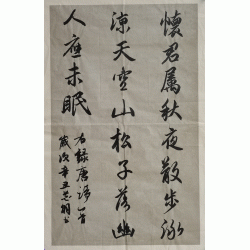 懷君属秋夜散步詠
涼天空山松子落幽
人應未眠
右錄唐詩一首
歲次辛丑